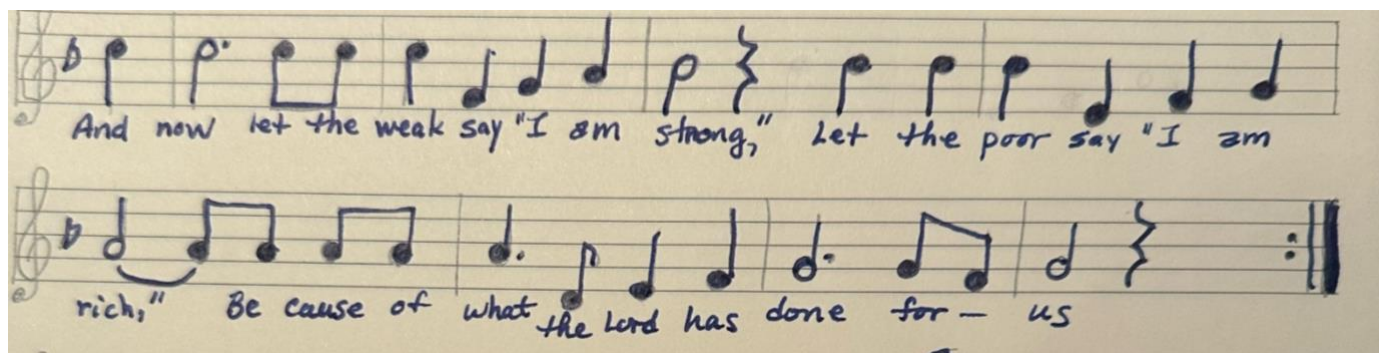 And now let the weak say "I am strong," Let the poor say "I am
rich," Be cause of what the Lord has done for - us